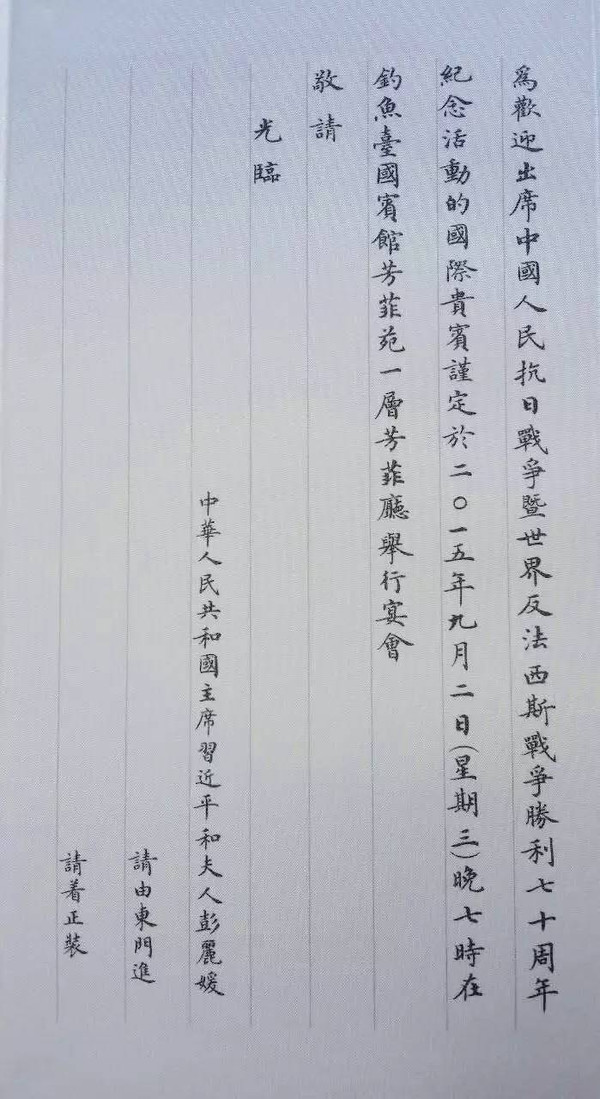 爲歡迎出席中國人民抗日戰爭暨世界反法西斯戰爭勝利七十周年
紀念活動的國際貴賓謹定於二〇一五年九月二日(星期三)晚七時在
釣魚臺國賓館芳菲苑一層芳菲廳舉行宴會
敬請
光臨
中華人民共和國主席習近平和夫人彭麗媛
請由東門進
請着正裝